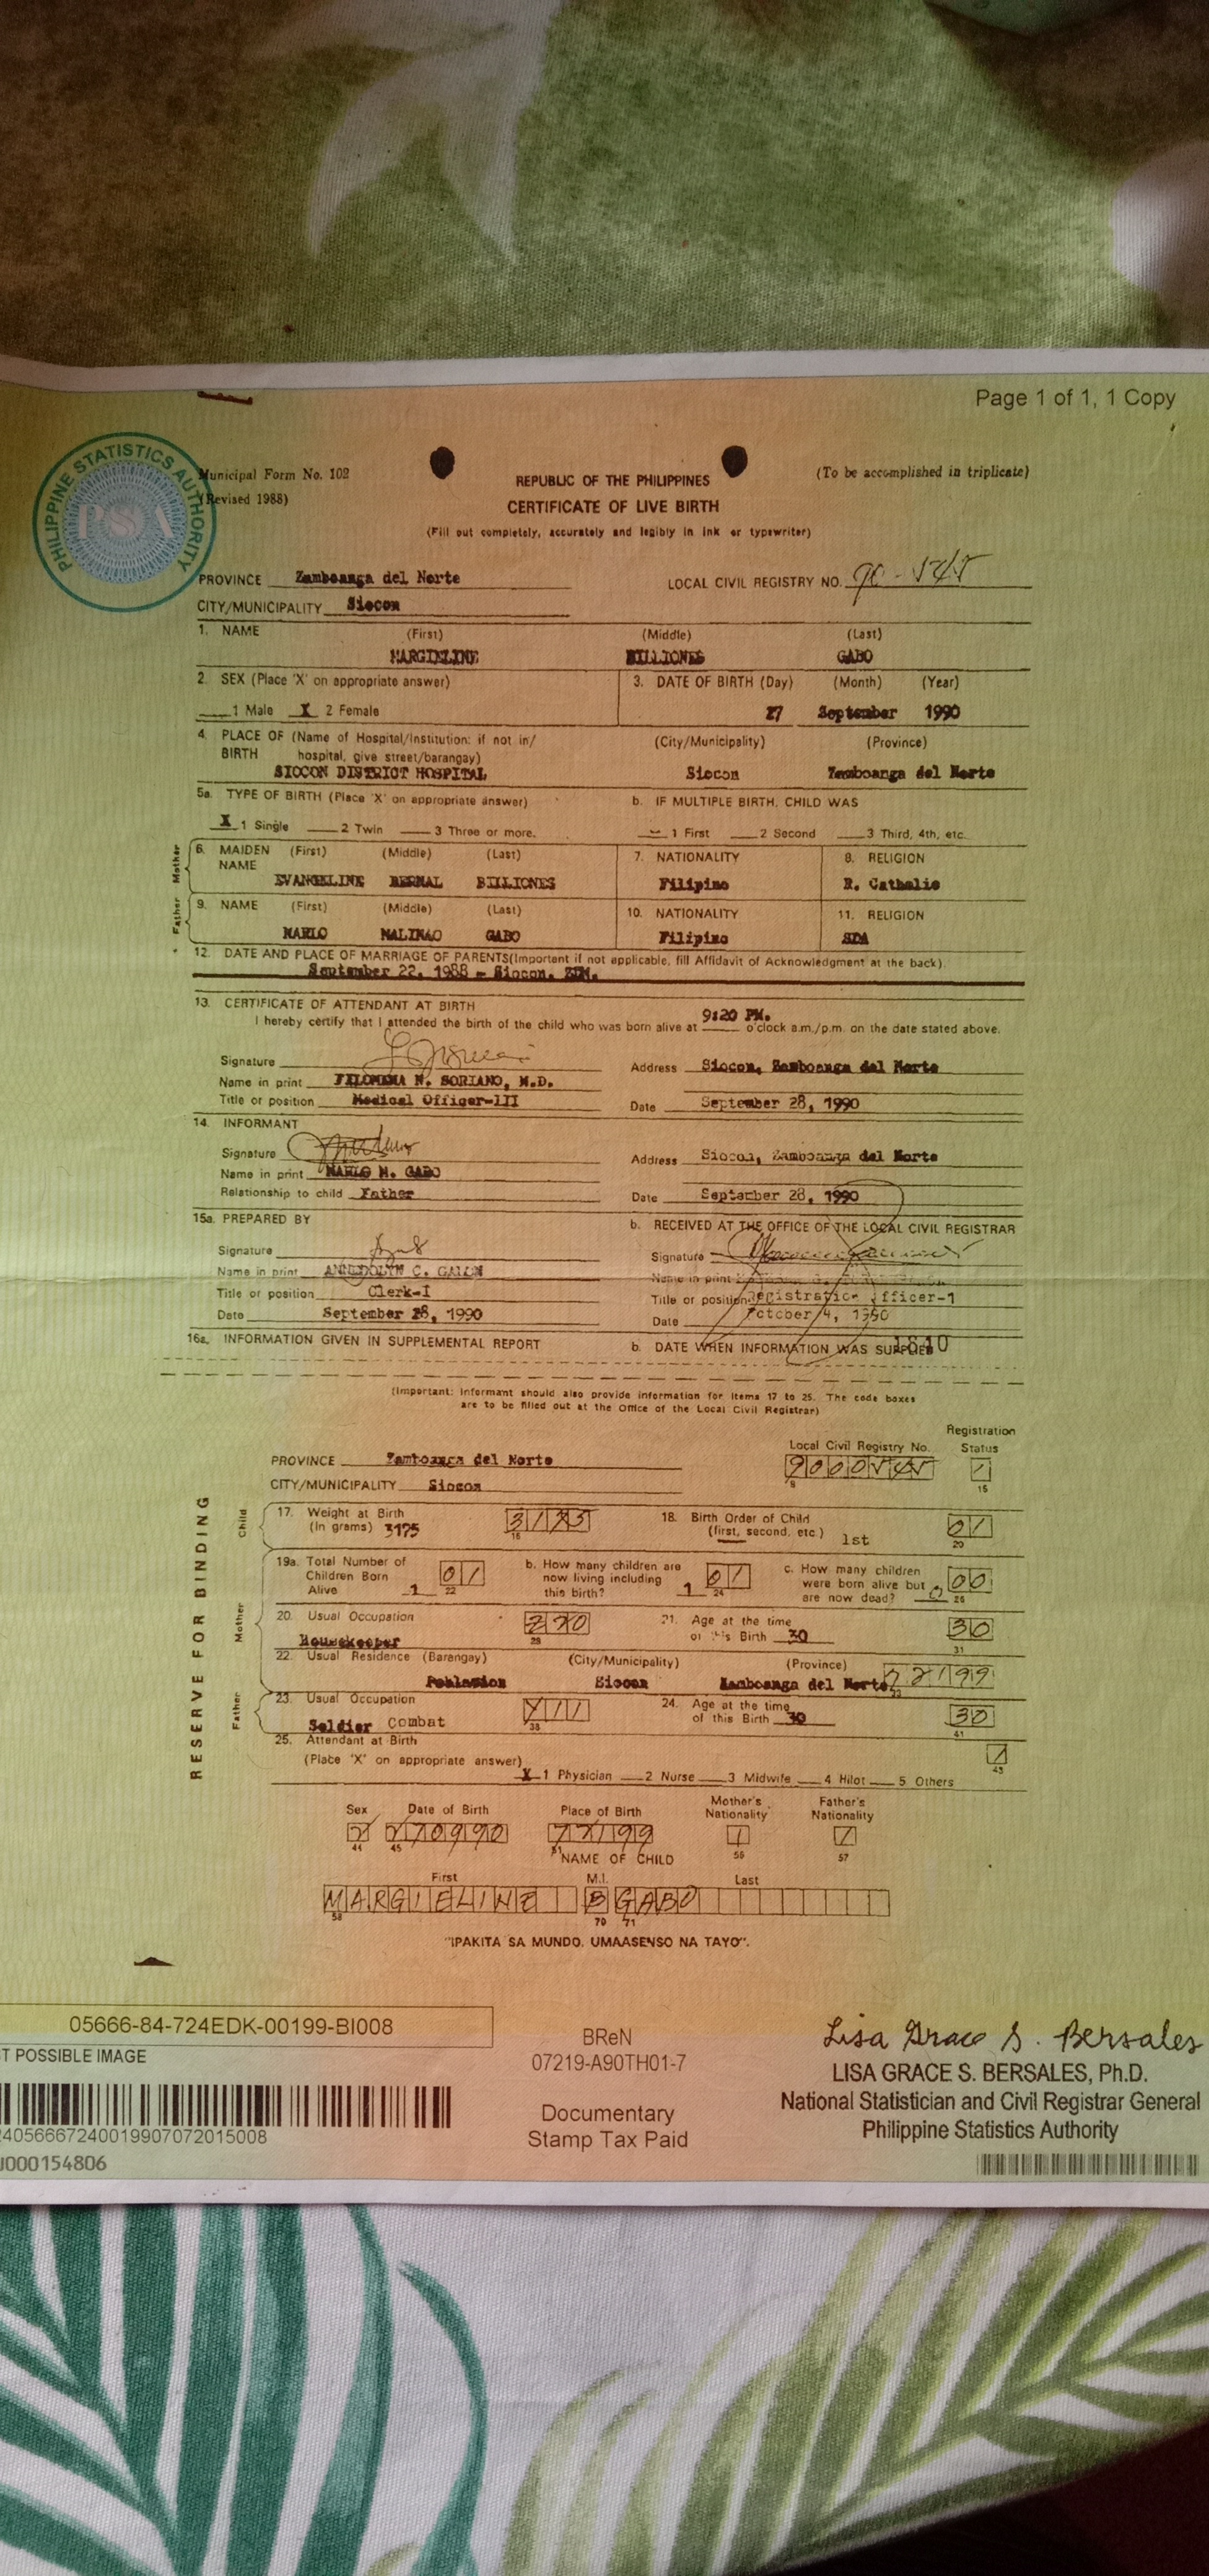 Page 1 of 1, 1 Copy
PHILIPPINE STATISTICS AUTHORITY
PSA
Municipal Form No. 102
(Revised 1988)
(To be accomplished in triplicate)
REPUBLIC OF THE PHILIPPINES
CERTIFICATE OF LIVE BIRTH
(Fill out completely, accurately and legibly in ink or typewriter)
PROVINCE Zamboanga del Norte
LOCAL CIVIL REGISTRY NO. 90-545
CITY/MUNICIPALITY Siocon
1. NAME (First) (Middle) (Last)
MARGIELINE BILLIONES GABO
2. SEX (Place 'X' on appropriate answer) 3. DATE OF BIRTH (Day) (Month) (Year)
1 Male X 2 Female 27 September 1990
4. PLACE OF (Name of Hospital/Institution: if not in/ (City/Municipality) (Province)
BIRTH hospital, give street/barangay)
SIOCON DISTRICT HOSPITAL Siocon Zamboanga del Norte
5a. TYPE OF BIRTH (Place 'X' on appropriate answer) b. IF MULTIPLE BIRTH, CHILD WAS
X 1 Single 2 Twin 3 Three or more. 1 First 2 Second 3 Third, 4th, etc.
Mother
6. MAIDEN (First) (Middle) (Last) 7. NATIONALITY 8. RELIGION
NAME
EVANGELINE BERNAL BILLIONES Filipino R. Catholic
Father
9. NAME (First) (Middle) (Last) 10. NATIONALITY 11. RELIGION
MARLO MALINAO GABO Filipino SDA
12. DATE AND PLACE OF MARRIAGE OF PARENTS(Important if not applicable, fill Affidavit of Acknowledgment at the back).
September 22, 1988 - Siocon, ZDN.
13. CERTIFICATE OF ATTENDANT AT BIRTH
I hereby certify that I attended the birth of the child who was born alive at 9:20 PM. o'clock a.m./p.m. on the date stated above.
Signature Address Siocon, Zamboanga del Norte
Name in print FILOMENA N. SORIANO, M.D.
Title or position Medical Officer-III Date September 28, 1990
14. INFORMANT
Signature Address Siocon, Zamboanga del Norte
Name in print MARLO M. GABO
Relationship to child Father Date September 28, 1990
15a. PREPARED BY b. RECEIVED AT THE OFFICE OF THE LOCAL CIVIL REGISTRAR
Signature Signature
Name in print C. Name in print
Title or position Clerk-I Title or position Registration Officer-1
Date September 28, 1990 Date October 4, 1990
16a. INFORMATION GIVEN IN SUPPLEMENTAL REPORT b. DATE WHEN INFORMATION WAS SUPPLIED
(Important: Informant should also provide information for items 17 to 25. The code boxes
are to be filled out at the Office of the Local Civil Registrar)
Registration
Local Civil Registry No. Status
PROVINCE Zamboanga del Norte 9000545 1
CITY/MUNICIPALITY Siocon
RESERVE FOR BINDING
Child
17. Weight at Birth 18. Birth Order of Child
(In grams) 3175 3175 (first, second, etc.) 1st 01
Mother
19a. Total Number of b. How many children are c. How many children
Children Born now living including were born alive but
Alive 1 01 this birth? 1 01 are now dead? 0 00
20. Usual Occupation 21. Age at the time
Housekeeper 220 of this Birth 30 30
22. Usual Residence (Barangay) (City/Municipality) (Province)
Poblacion Siocon Zamboanga del Norte 72199
Father
23. Usual Occupation 24. Age at the time
Soldier Combat of this Birth 30 30
25. Attendant at Birth
(Place 'X' on appropriate answer) 1
X 1 Physician 2 Nurse 3 Midwife 4 Hilot 5 Others
Sex Date of Birth Place of Birth Mother's Nationality Father's Nationality
2 270990 72199 1 1
NAME OF CHILD
First M.I. Last
MARGIELINE B GABO
"IPAKITA SA MUNDO, UMAASENSO NA TAYO".
05666-84-724EDK-00199-BI008
T POSSIBLE IMAGE
BReN
07219-A90TH01-7
Documentary
Stamp Tax Paid
Lisa Grace S. Bersales
LISA GRACE S. BERSALES, Ph.D.
National Statistician and Civil Registrar General
Philippine Statistics Authority
4056667240019907072015008
000154806